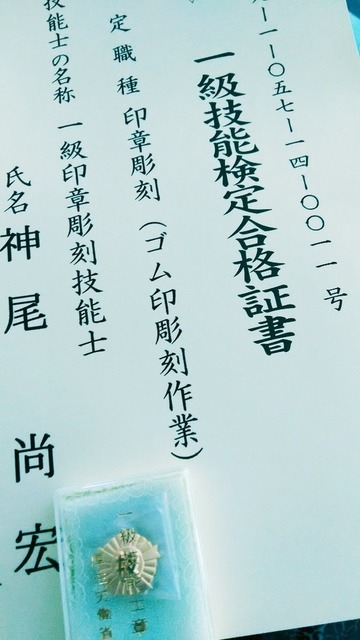 一―〇五七―一四―〇〇一一号
一級技能検定合格証書
定職種 印章彫刻(ゴム印彫刻作業)
技能士の名称 一級印章彫刻技能士
氏名 神尾 尚宏
一級技能士章